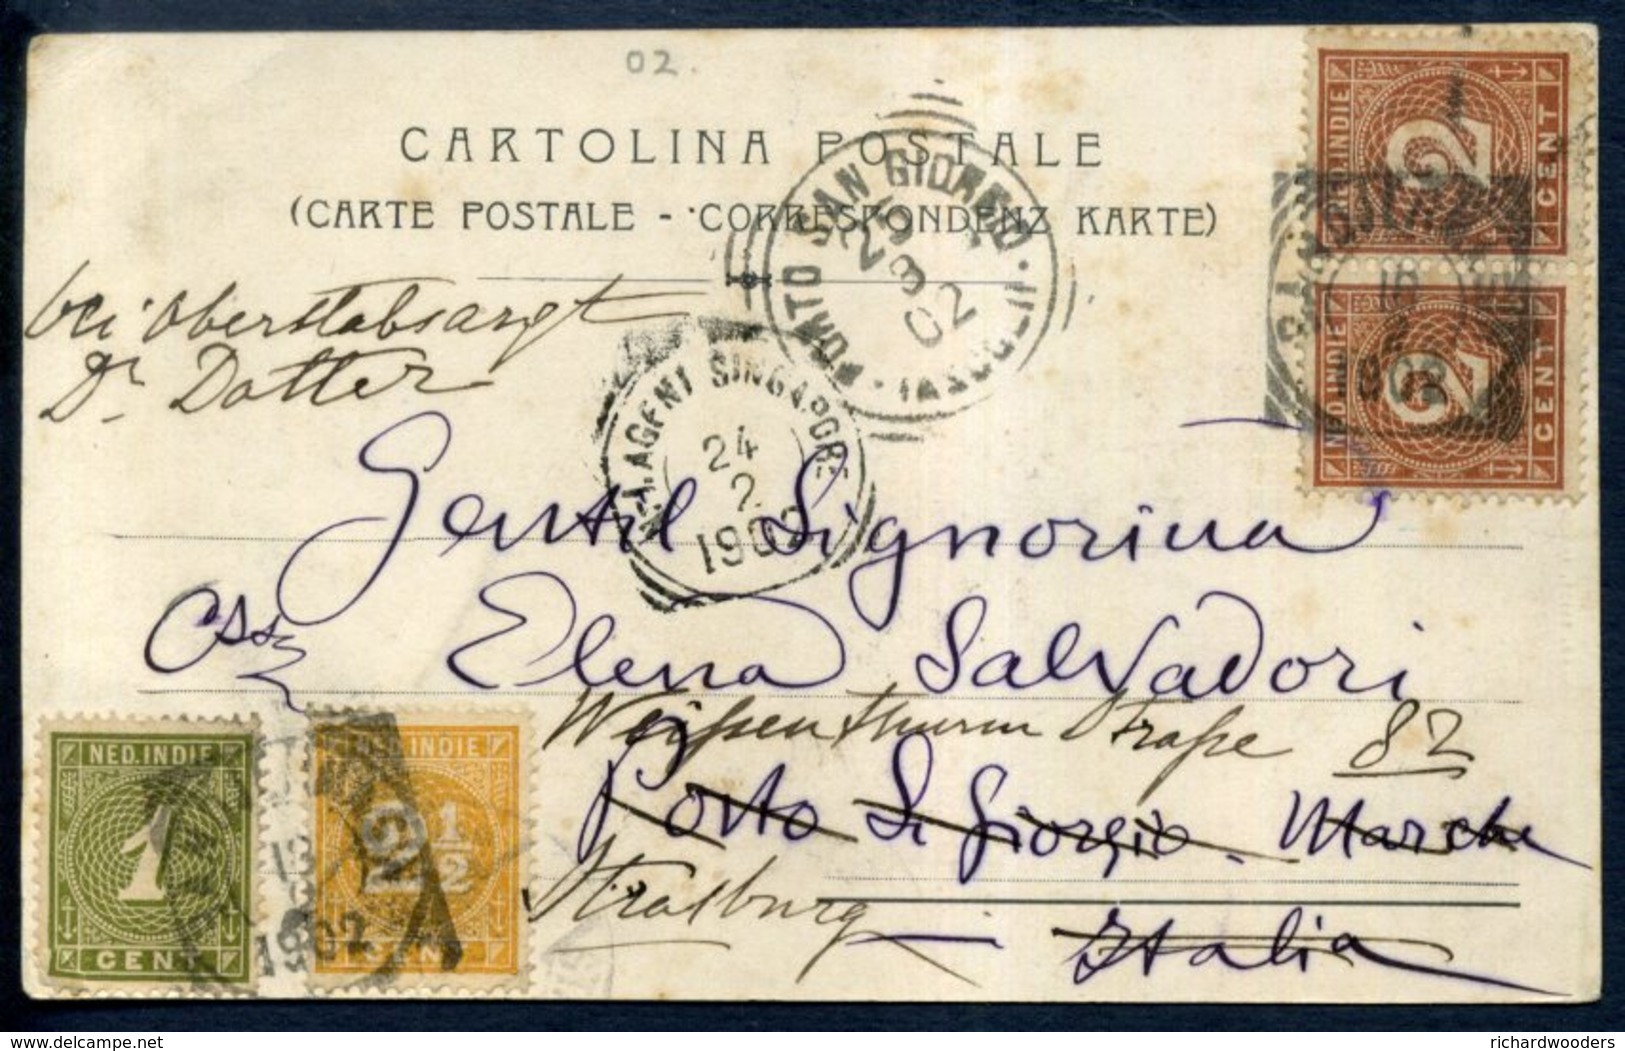 02.
CARTOLINA POSTALE
(CARTE POSTALE - CORRESPONDENZ KARTE)
bei Oberstabsarzt
Dr Dotter
PORTO SAN GIORGIO
25
3
02
N.I. AGENT SINGAPORE
24
2
1902
NED.INDIE
2
CENT
NED.INDIE
2
CENT
10
Gentil Signorina
Elena Salvadori
Weissenthurm Strasse 82
Porto S. Giorgio. Marche
Strasburg
Italia
NED.INDIE
1
CENT
NED.INDIE
2 1/2
CENT
1902
delcampe.net
richardwooders